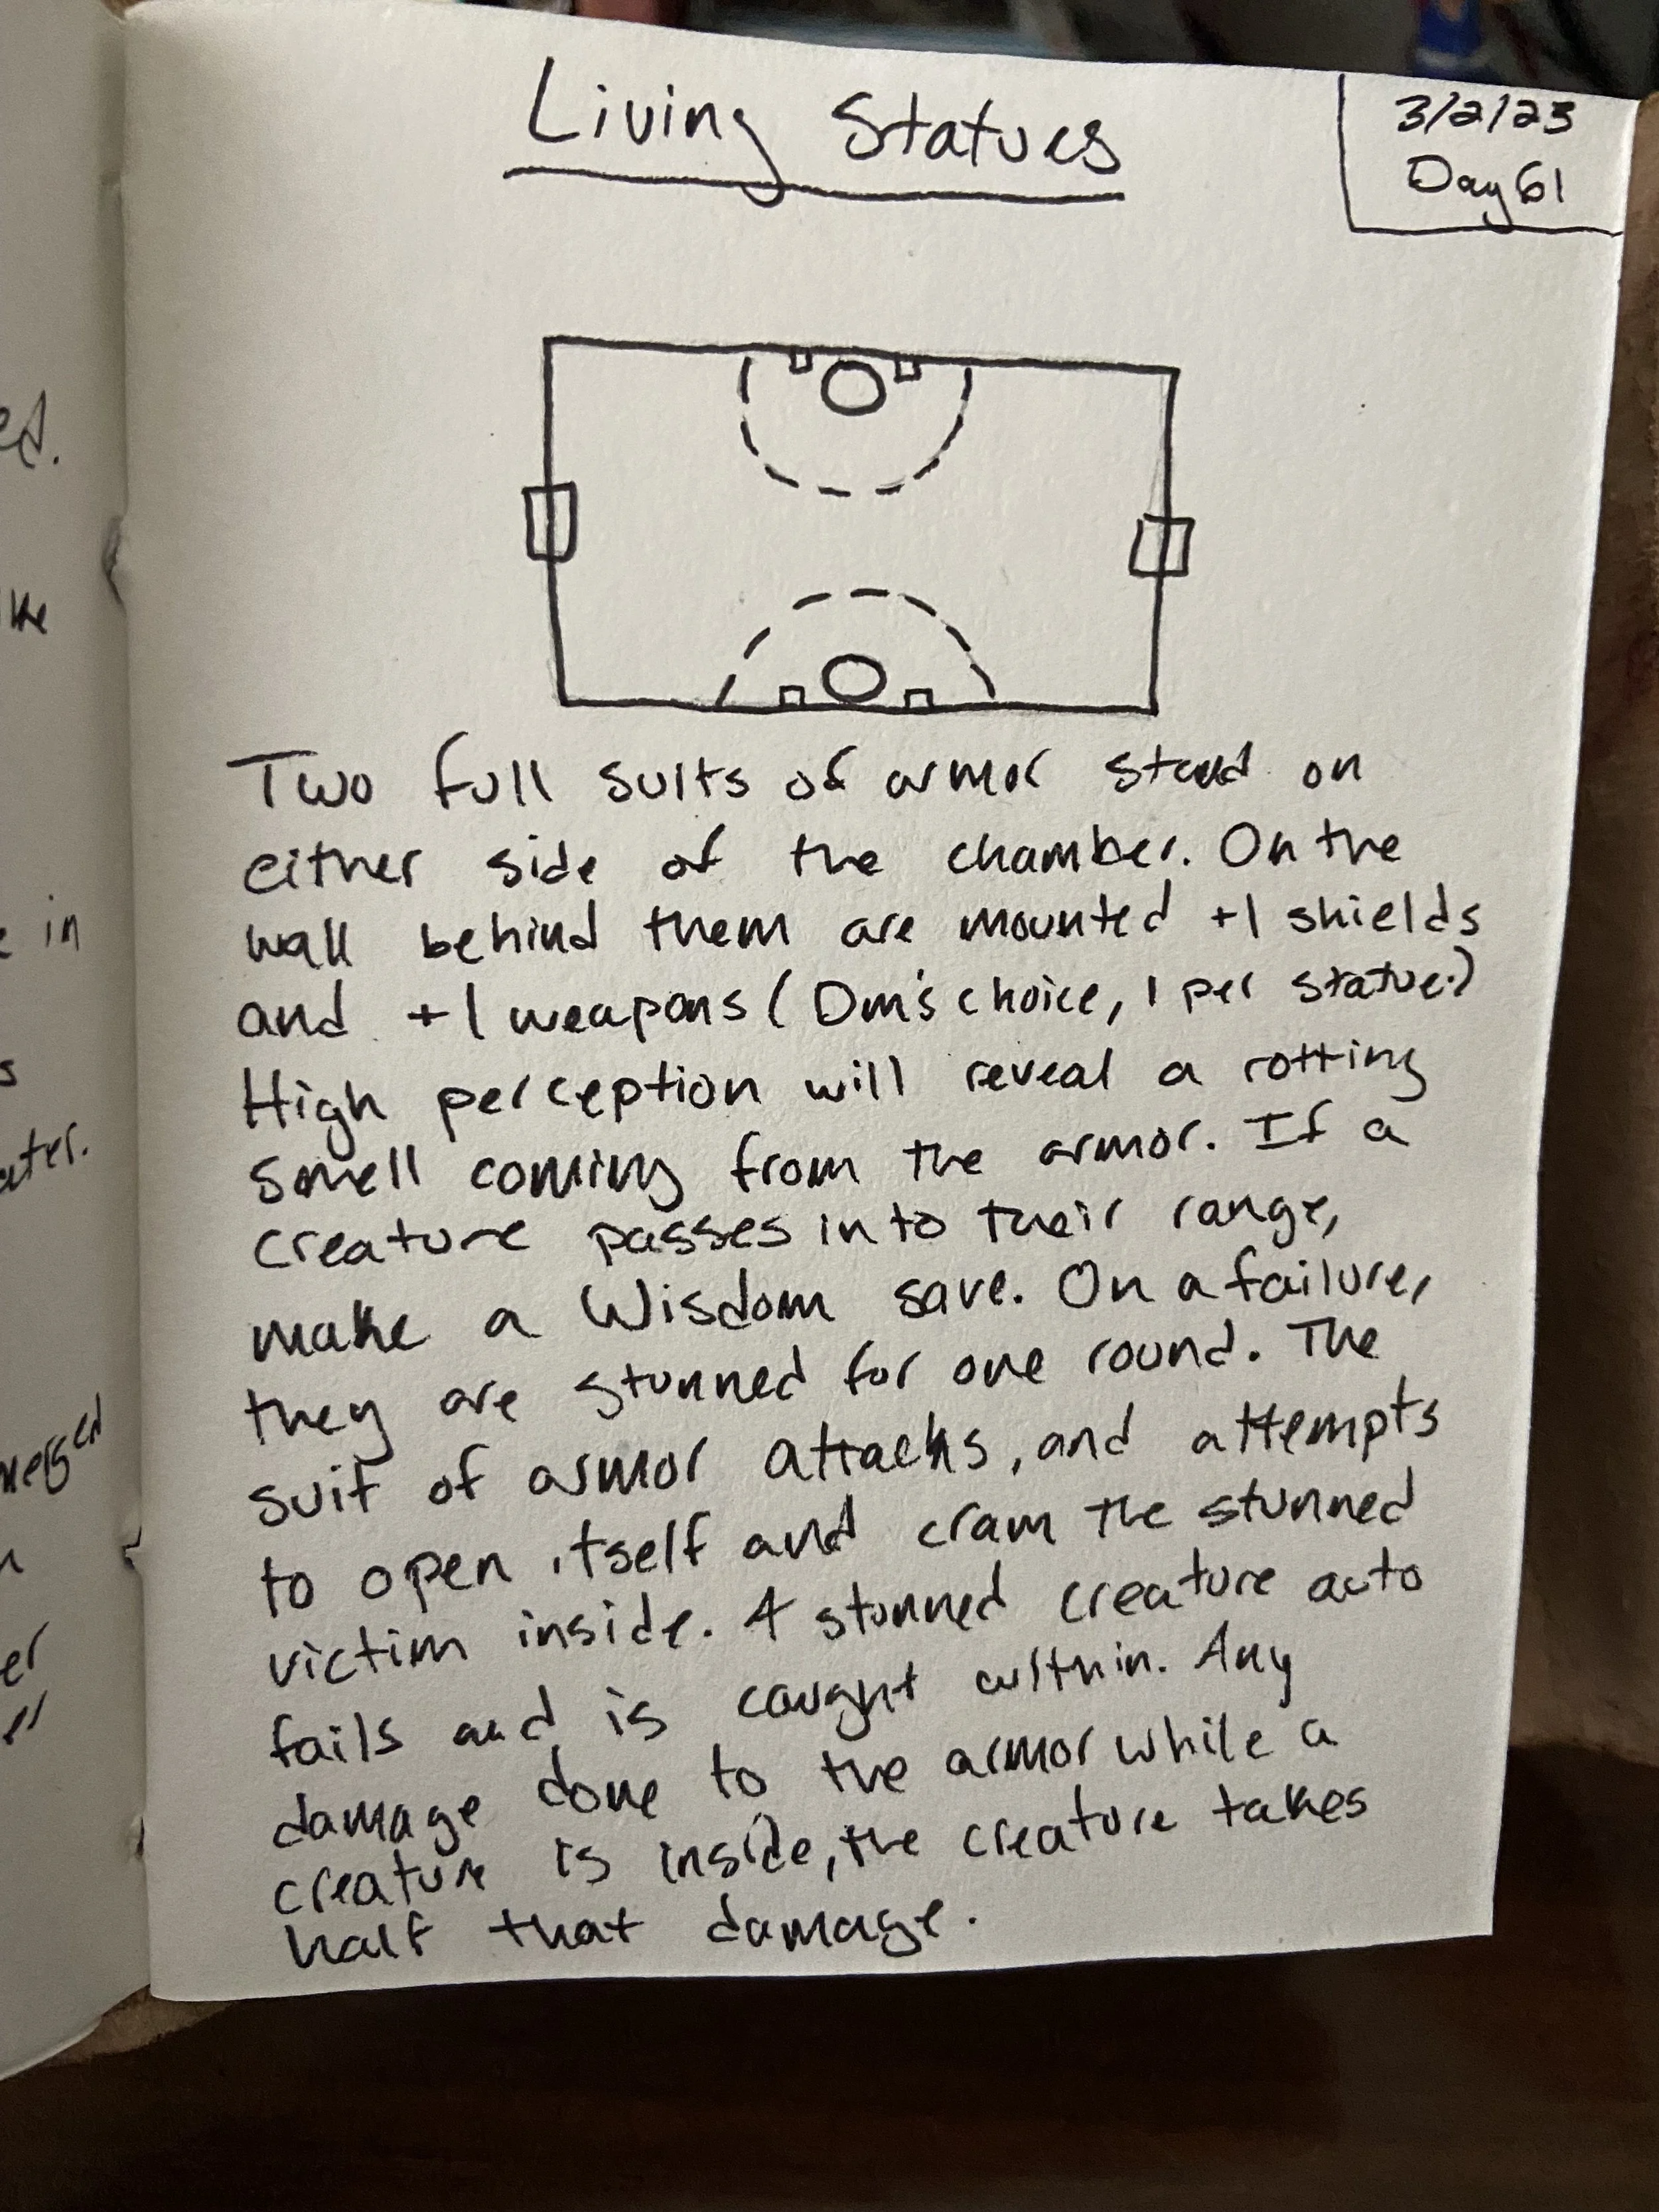 Living Statues
3/2/23
Day 61
Two full suits of armor stand on
either side of the chamber. On the
wall behind them are mounted +1 shields
and +1 weapons (Dm's choice, 1 per statue.)
High perception will reveal a rotting
smell coming from the armor. If a
creature passes into their range,
make a Wisdom save. On a failure,
they are stunned for one round. The
suit of armor attacks, and attempts
to open itself and cram the stunned
victim inside. A stunned creature auto
fails and is caught within. Any
damage done to the armor while a
creature is inside, the creature takes
half that damage.
ed.
in
s
er